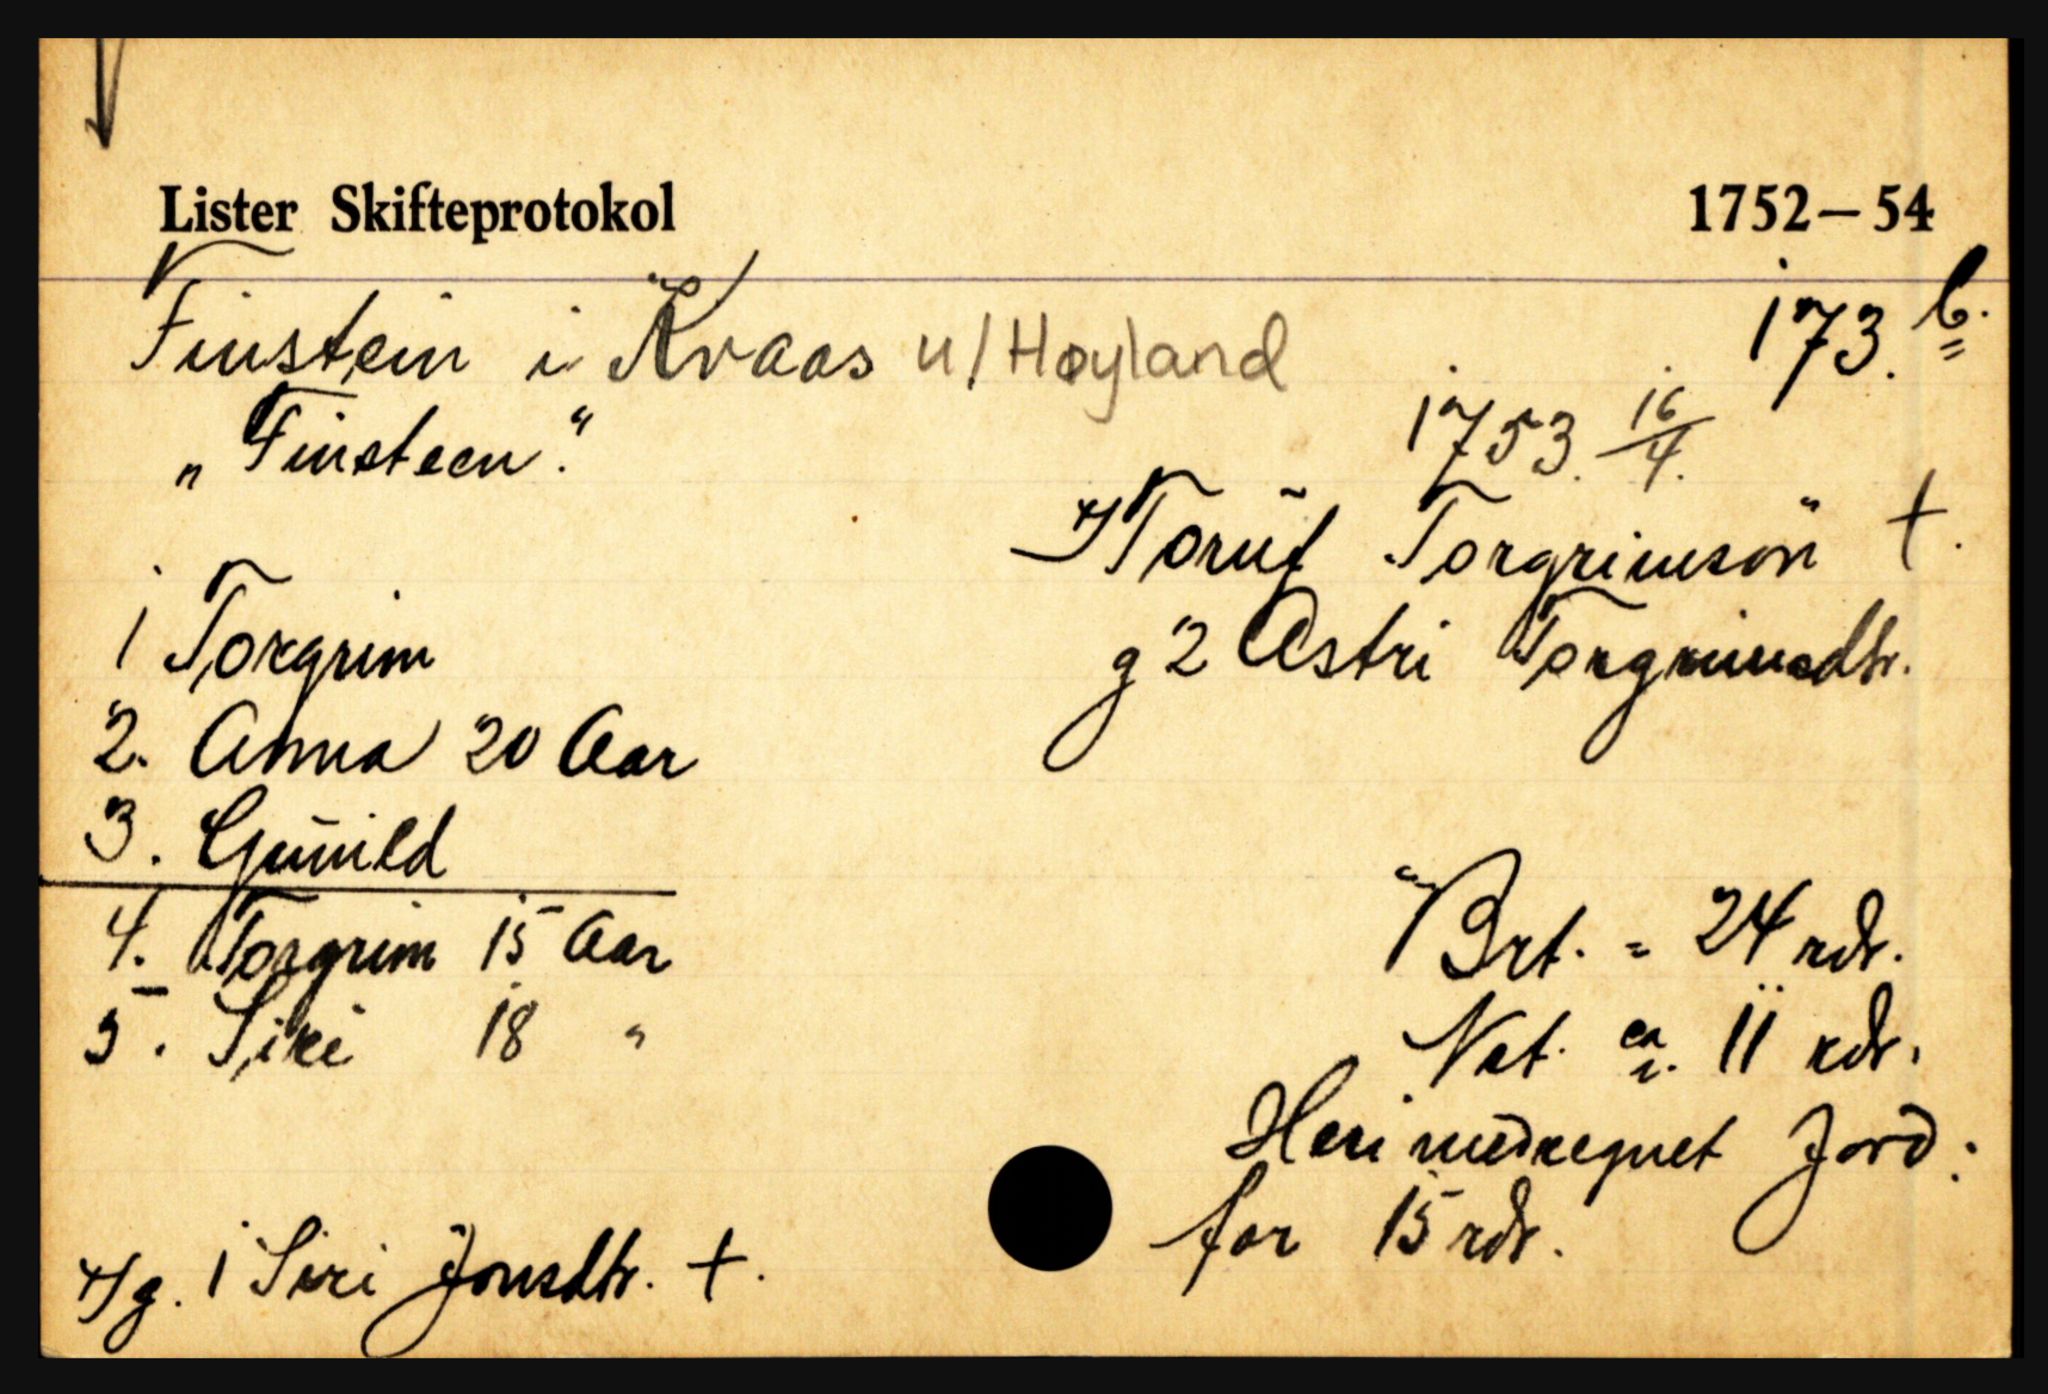 Lister Skifteprotokol 1752–54
Finstein i Kvaas u/Høyland 173. b.
„Finsteen." 1753. 16/4.
x/ Toruf Torgrimsøn †.
g 2 Astri Torgrimsdtr.
1 Torgrim
2. Anna 20 Aar
3. Gunild
4. Torgrim 15 Aar
5. Siri 18 "
Brt. = 24 rdr.
Net. ca. 11 rdr.
Heri medregnet Jord:
for 15 rdr.
x/ g. 1 Siri Jonsdtr. †.